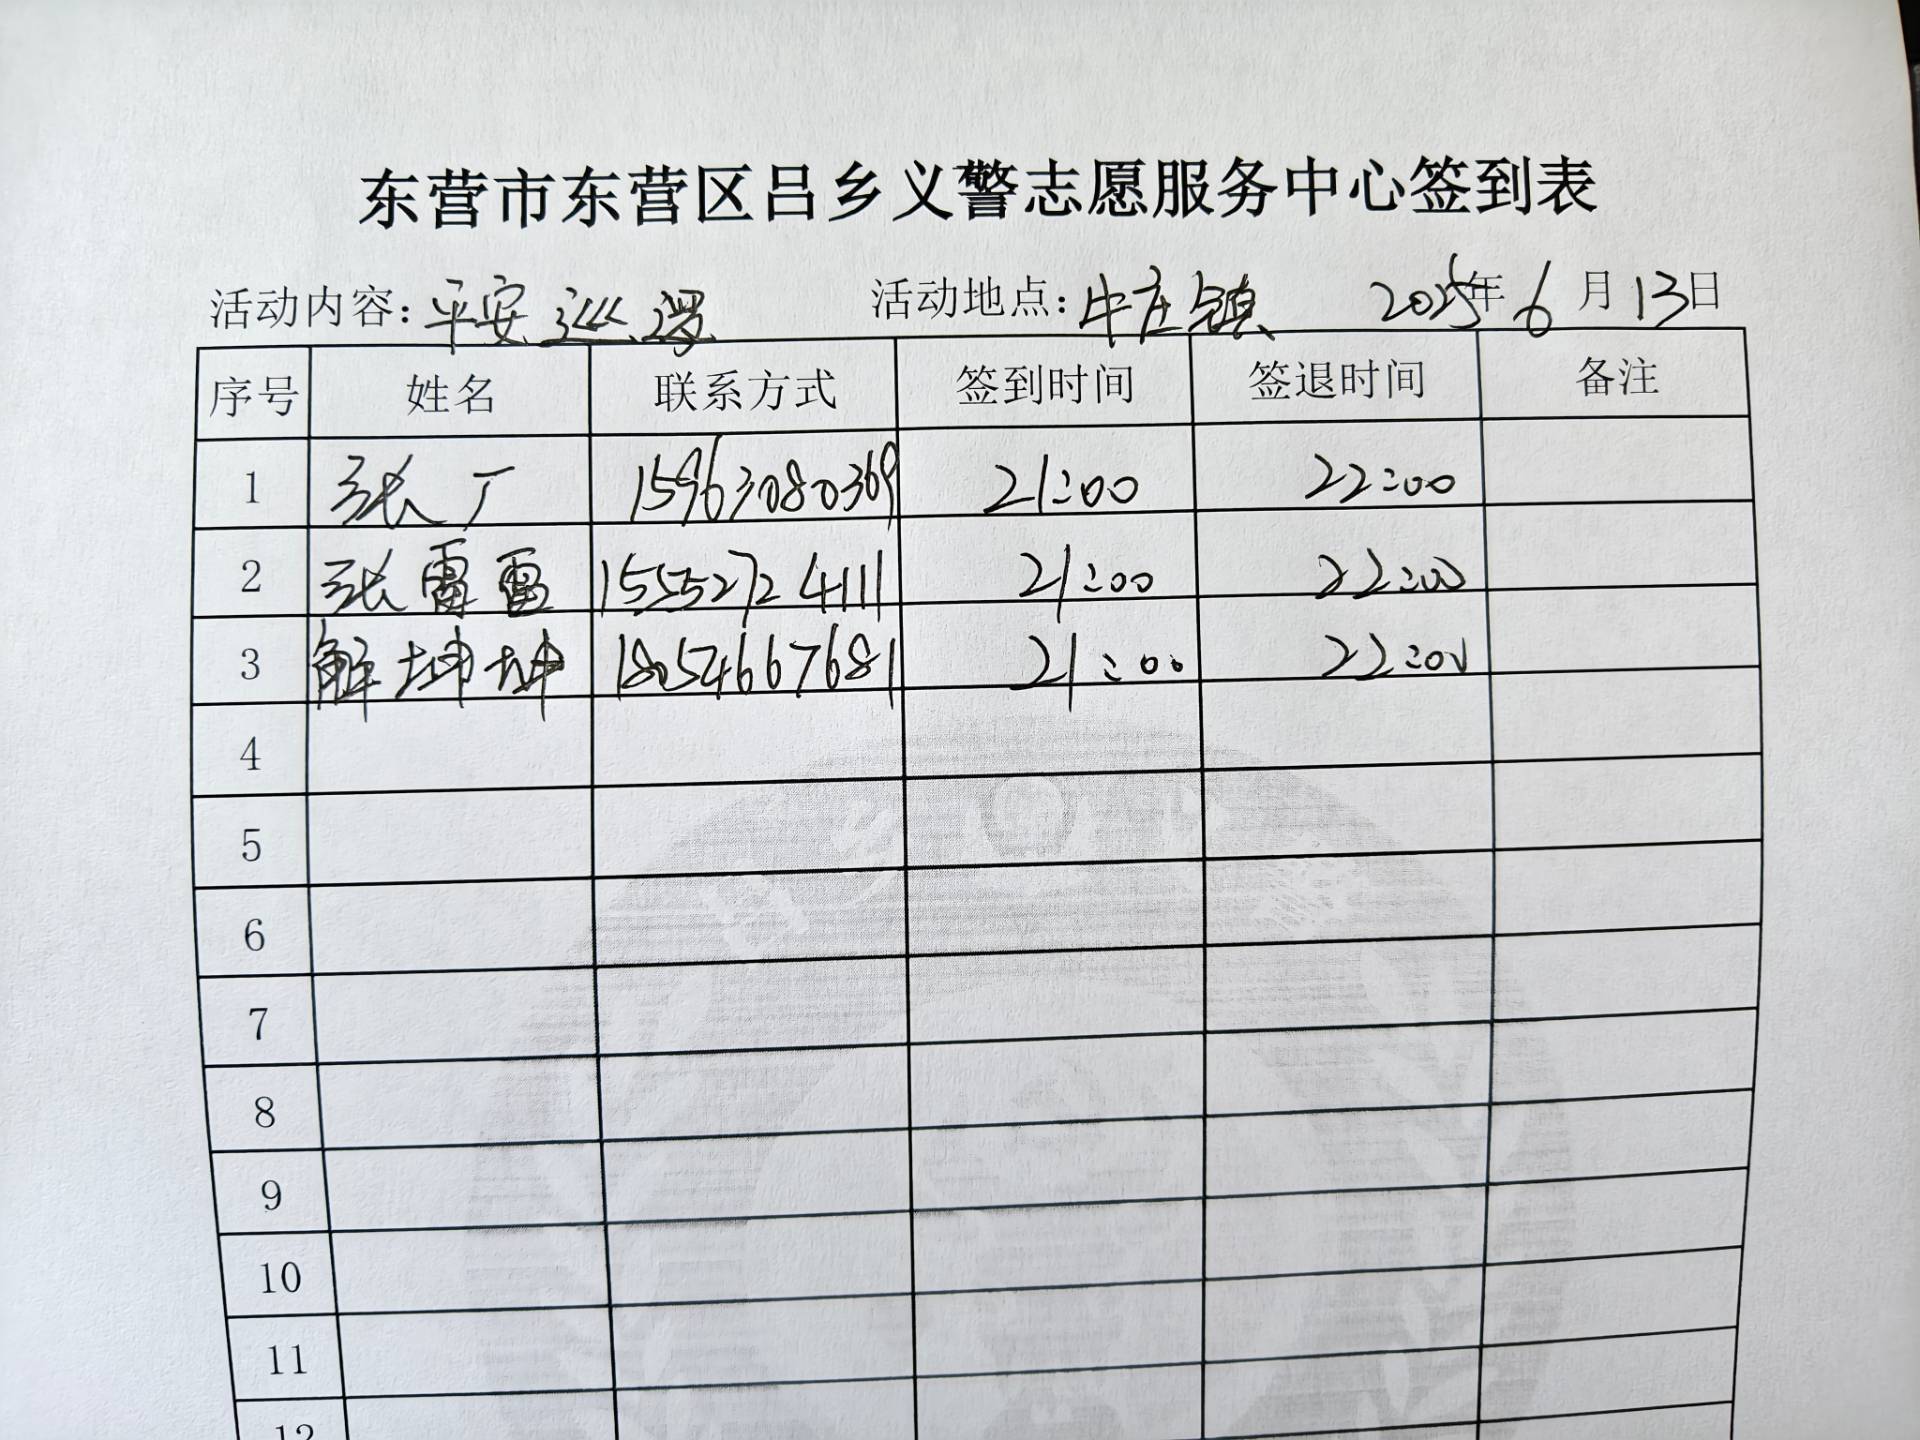 东营市东营区吕乡义警志愿服务中心签到表
活动内容：平安巡逻 活动地点：牛庄镇 2025年6月13日
序号 姓名 联系方式 签到时间 签退时间 备注
1 张广 15963080369 21:00 22:00
2 张雷雷 15552724111 21:00 22:00
3 解坤坤 18054667681 21:00 22:00
4
5
6
7
8
9
10
11
12